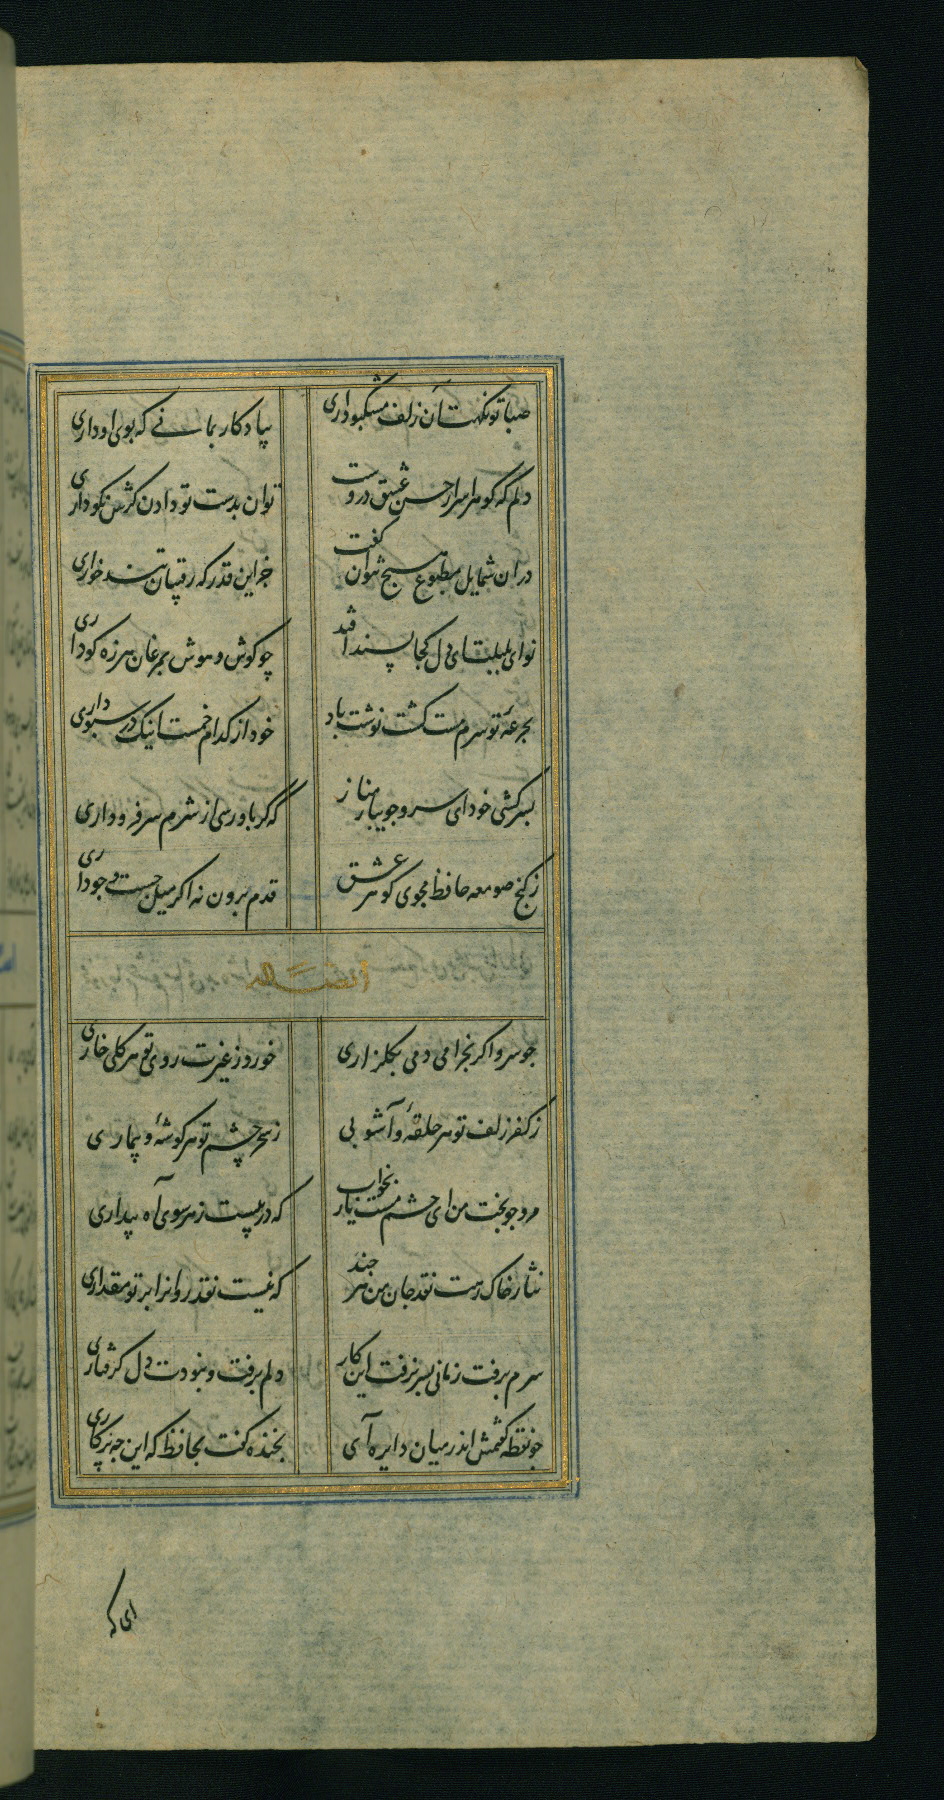 صبا تو نکهت آن زلف مشکبو داری بیادکار بمانی که بوی او داری
دلم که کوهر اسرار حسن و عشق دروست توان بدست تو دادن کرش نکو داری
در ان شمایل مطبوع هیچ نتوان کفت جز این قدر که رقیبان تند خو داری
نوای بلبلت ای کل کجا پسند افتد چو کوش و هوش بمرغان هرزه کو داری
بجرعهٔ تو سرم مست کشت نوشت باد خود از کدام خمست اینک در سبو داری
بسرکشی خود ای سرو جویبار مناز که کر باو رسی از شرم سر فرو داری
ز کنج صومعه حافظ مجوی کوهر عشق قدم برون نه اکر میل جست و جو داری
ایضا له
چو سرو اکر بخرامی دمی بکلزاری خورد ز غیرت روی تو هر کلی خاری
ز کفر زلف تو هر حلقهٔ و آشوبی ز سحر چشم تو هر کوشهٔ و بیماری
مرو چو بخت من ای چشم مست یار بخواب که در پیست ز هر سوی آه بیداری
نثار خاک رهت نقد جان من هر چند که نیست نقد روانرا بر تو مقداری
سرم برفت زمانی بسر نرفت این کار دلم برفت و نبودت دل کرفتاری
چو نقطه کفتمش اندر میان دایره آی بخنده کفت بحافظ که این چه پرکاری
ای که